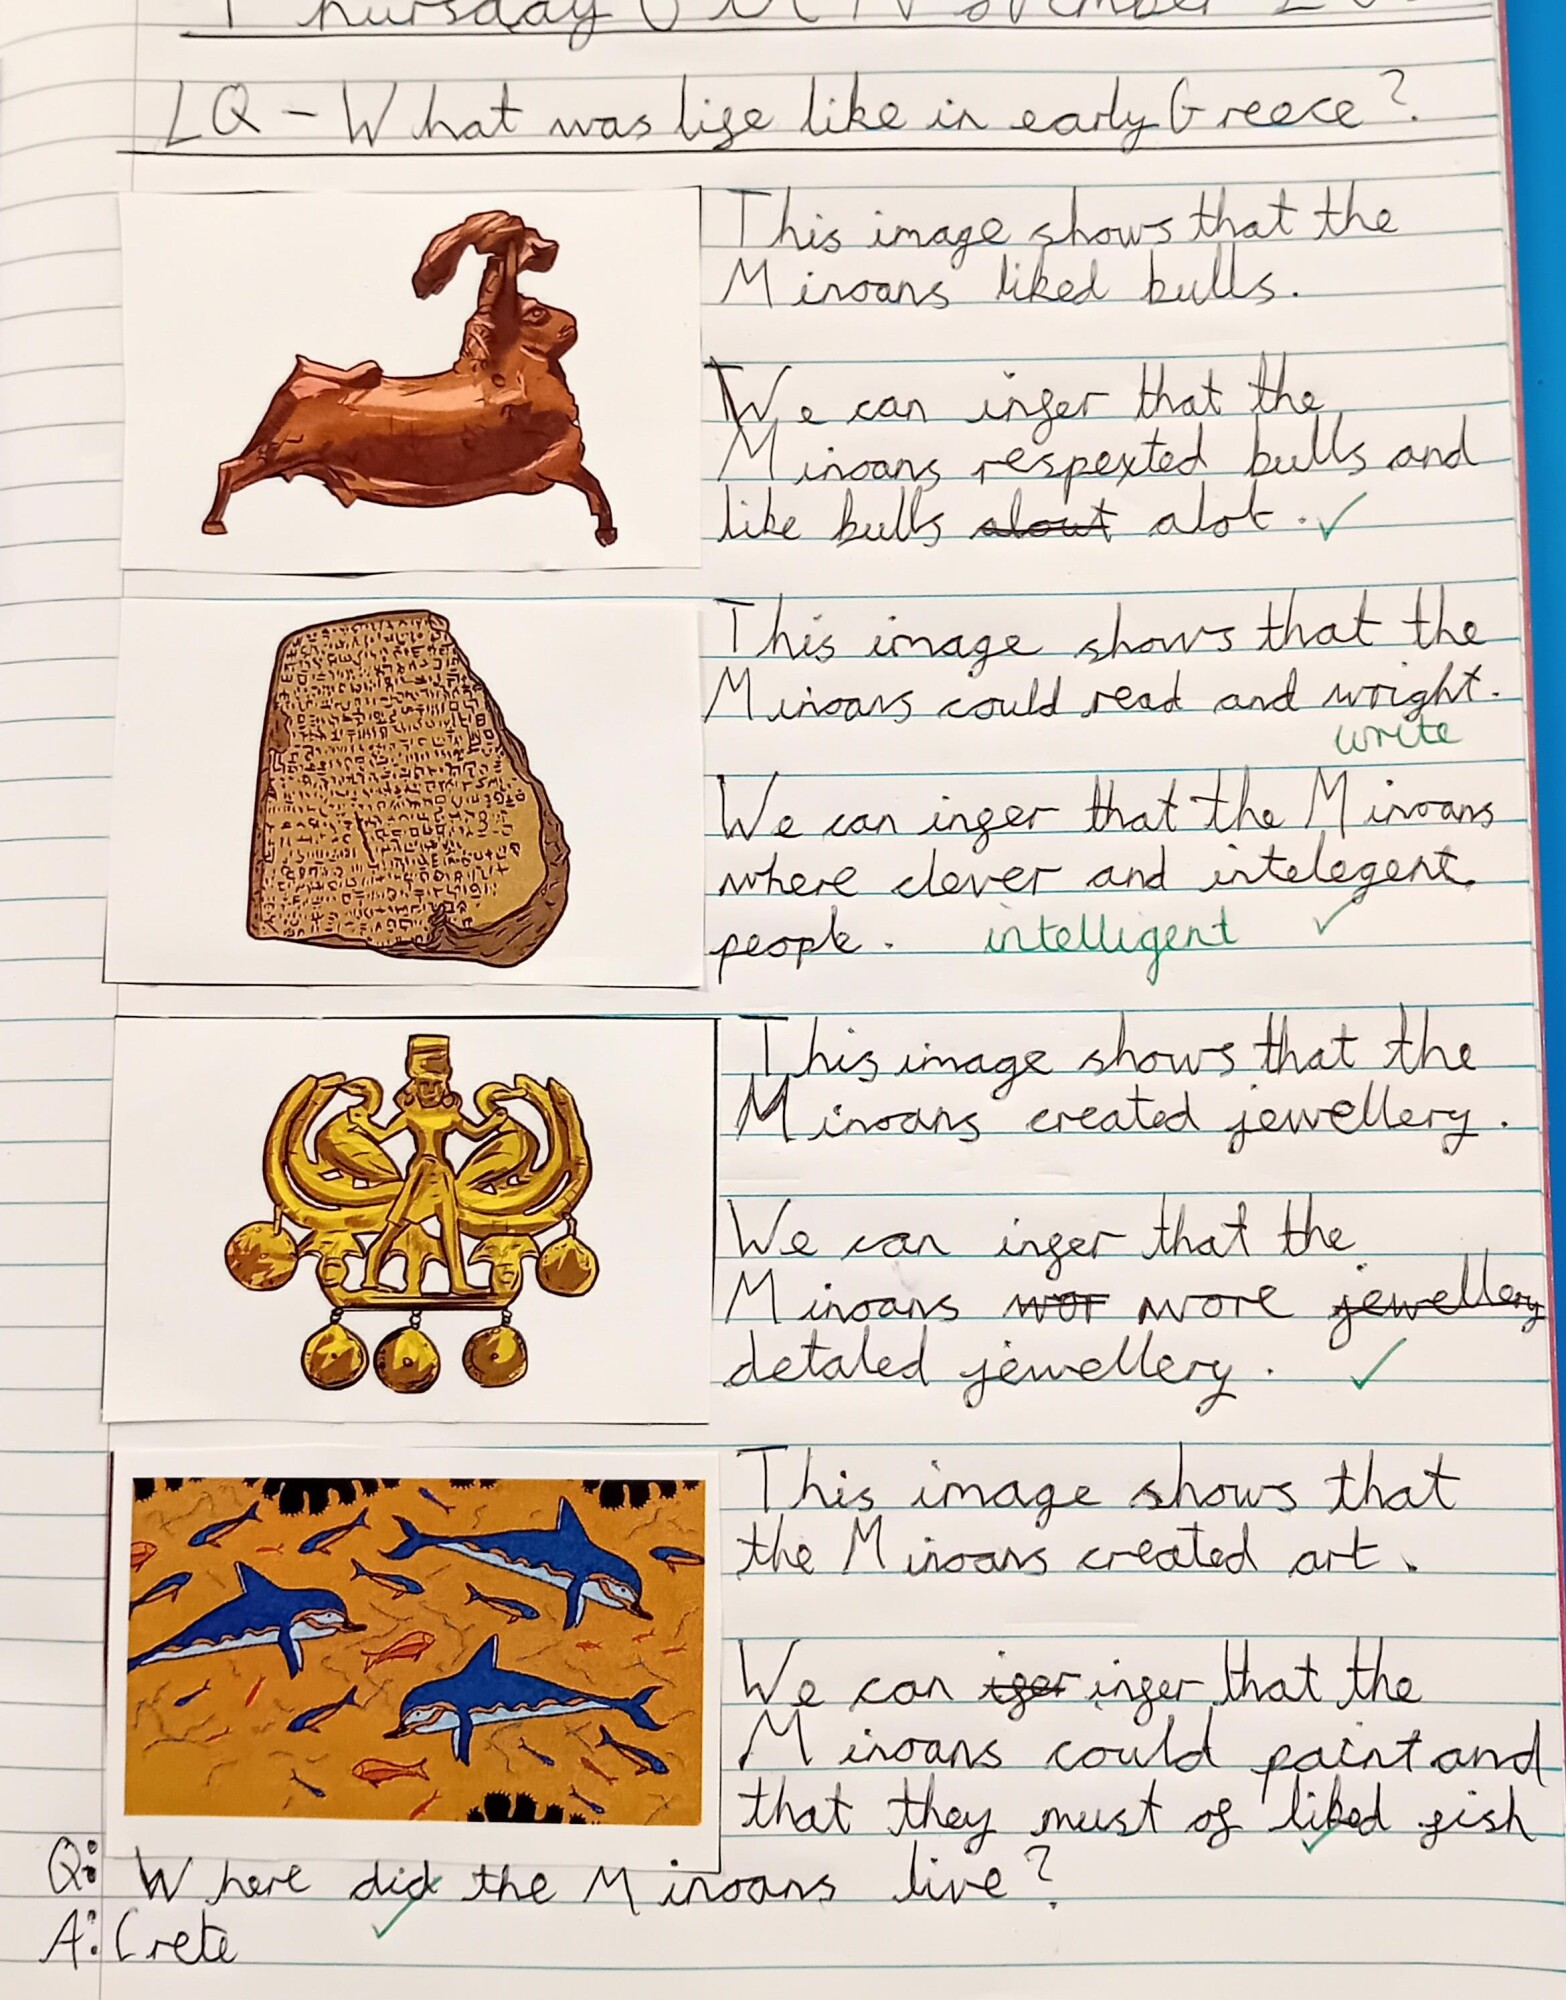 Thursday
LQ - What was life like in early Greece?
This image shows that the
Minoans liked bulls.
We can infer that the
Minoans respexted bulls and
like bulls alout alot.
This image shows that the
Minoans could read and wright.
write
We can infer that the Minoans
where clever and intelegent.
people. intelligent
This image shows that the
Minoans created jewellery.
We can infer that the
Minoans wor wore jewellery
detaled jewellery.
This image shows that
the Minoans created art.
We can ifer infer that the
Minoans could paint and
that they must of liked fish
Q: Where did the Minoans live?
A: Crete